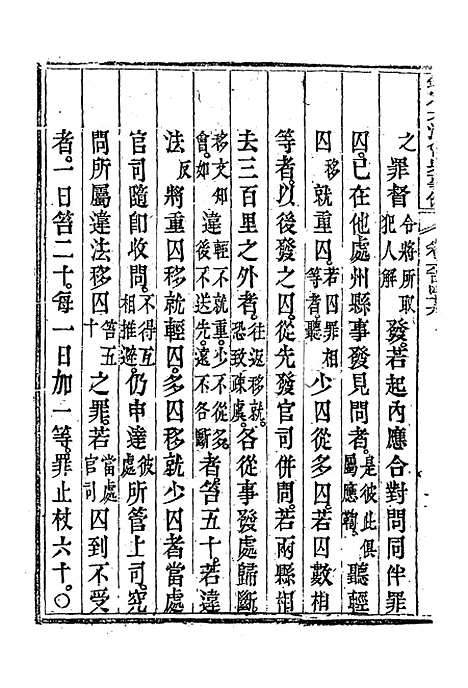 之罪督令將所取犯人解發。若起內應合對問同伴罪
囚。已在他處州縣事發見問者。是彼此俱屬應鞫。聽輕
囚移就重囚。若囚罪相等者聽少囚從多囚。若囚數相
等者。以後發之囚。從先發官司併問。若兩縣相
去三百里之外者。往返移就。恐致疎虞。各從事發處歸斷
移文知會。如違輕不就重。少不從多。後不送先。遠不各斷者。笞五十。若違
法反將重囚移就輕囚。多囚移就少囚者。當處
官司隨卽收問。不得互相推避。仍申達彼處所管上司。究
問所屬違法移囚笞五十之罪。若當處官司囚到不受
者。一日笞二十。每一日加一等。罪止杖六十。〇